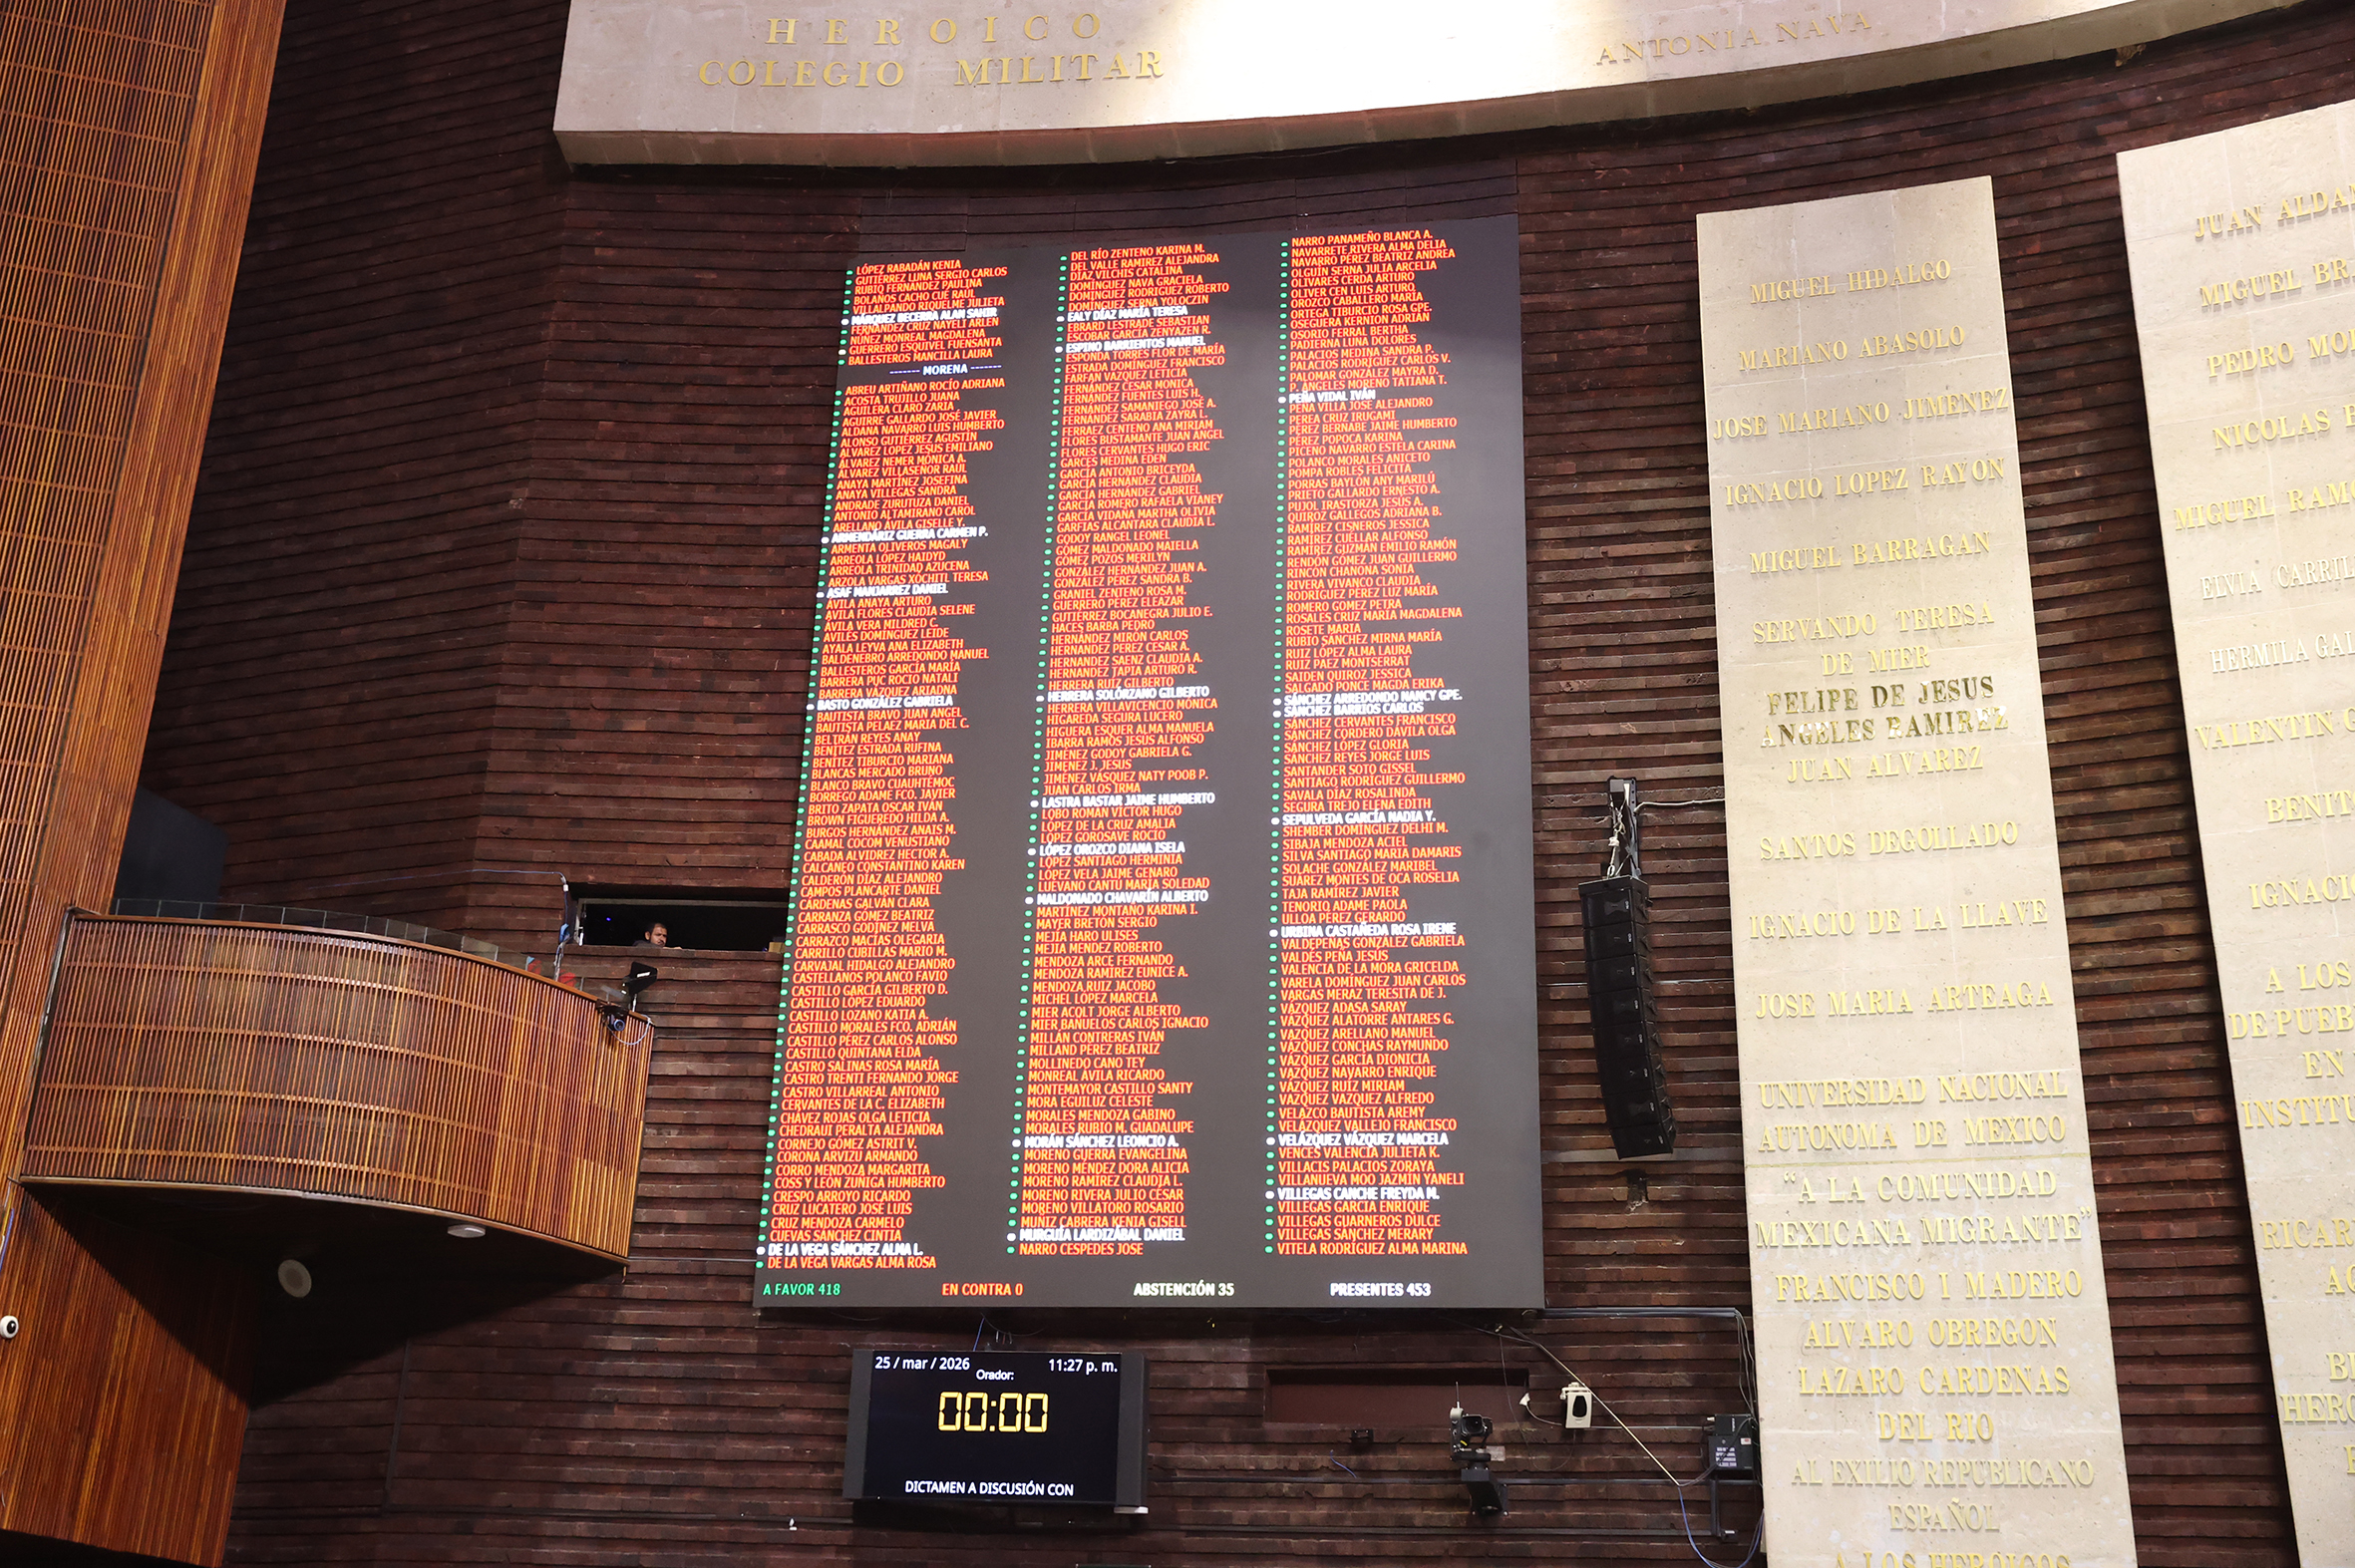 HEROICO
COLEGIO MILITAR
ANTONIA NAVA
LÓPEZ RABADÁN KENIA
GUTIÉRREZ LUNA SERGIO CARLOS
RUBIO FERNÁNDEZ PAULINA
BOLAÑOS CACHO CUÉ RAÚL
VILLALPANDO RIQUELME JULIETA
MÁRQUEZ BECERRA ALAN SAHIR
FERNÁNDEZ CRUZ NAYELI ARLEN
NÚÑEZ MONREAL MAGDALENA
GUERRERO ESQUIVEL FUENSANTA
BALLESTEROS MANCILLA LAURA
------- MORENA -------
ABREU ARTIÑANO ROCÍO ADRIANA
ACOSTA TRUJILLO JUANA
AGUILERA CLARO ZARIA
AGUIRRE GALLARDO JOSÉ JAVIER
ALDANA NAVARRO LUIS HUMBERTO
ALONSO GUTIÉRREZ AGUSTÍN
ÁLVAREZ LÓPEZ JESÚS EMILIANO
ÁLVAREZ NEMER MÓNICA A.
ÁLVAREZ VILLASEÑOR RAÚL
ANAYA MARTÍNEZ JOSEFINA
ANAYA VILLEGAS SANDRA
ANDRADE ZURUTUZA DANIEL
ANTONIO ALTAMIRANO CAROL
ARELLANO ÁVILA GISELLE Y.
ARMENDÁRIZ GUERRA CARMEN P.
ARMENTA OLIVEROS MAGALY
ARREOLA LÓPEZ HAIDYD
ARREOLA TRINIDAD AZUCENA
ARZOLA VARGAS XÓCHITL TERESA
ASAF MANJARREZ DANIEL
ÁVILA ANAYA ARTURO
ÁVILA FLORES CLAUDIA SELENE
ÁVILA VERA MILDRED C.
AVILÉS DOMÍNGUEZ LEIDE
AYALA LEYVA ANA ELIZABETH
BALDENEBRO ARREDONDO MANUEL
BALLESTEROS GARCÍA MARÍA
BARRERA PUC ROCÍO NATALÍ
BARRERA VÁZQUEZ ARIADNA
BASTO GONZÁLEZ GABRIELA
BAUTISTA BRAVO JUAN ÁNGEL
BAUTISTA PELÁEZ MARÍA DEL C.
BELTRÁN REYES ANAY
BENÍTEZ ESTRADA RUFINA
BENÍTEZ TIBURCIO MARIANA
BLANCAS MERCADO BRUNO
BLANCO BRAVO CUAUHTÉMOC
BORREGO ADAME FCO. JAVIER
BRITO ZAPATA OSCAR IVÁN
BROWN FIGUEREDO HILDA A.
BURGOS HERNÁNDEZ ANAIS M.
CAAMAL COCOM VENUSTIANO
CABADA ALVIDREZ HÉCTOR A.
CALCÁNEO CONSTANTINO KAREN
CALDERÓN DÍAZ ALEJANDRO
CAMPOS PLANCARTE DANIEL
CÁRDENAS GALVÁN CLARA
CARRANZA GÓMEZ BEATRIZ
CARRASCO GODÍNEZ MELVA
CARRAZCO MACÍAS OLEGARIA
CARRILLO CUBILLAS MARIO M.
CARVAJAL HIDALGO ALEJANDRO
CASTELLANOS POLANCO FAVIO
CASTILLO GARCÍA GILBERTO D.
CASTILLO LÓPEZ EDUARDO
CASTILLO LOZANO KATIA A.
CASTILLO MORALES FCO. ADRIÁN
CASTILLO PÉREZ CARLOS ALONSO
CASTILLO QUINTANA ELDA
CASTRO SALINAS ROSA MARÍA
CASTRO TRENTI FERNANDO JORGE
CASTRO VILLARREAL ANTONIO
CERVANTES DE LA C. ELIZABETH
CHÁVEZ ROJAS OLGA LETICIA
CHEDRAUI PERALTA ALEJANDRA
CORNEJO GÓMEZ ASTRIT V.
CORONA ARVIZU ARMANDO
CORRO MENDOZA MARGARITA
COSS Y LEÓN ZÚÑIGA HUMBERTO
CRESPO ARROYO RICARDO
CRUZ LUCATERO JOSÉ LUIS
CRUZ MENDOZA CARMELO
CUEVAS SÁNCHEZ CINTIA
DE LA VEGA SÁNCHEZ ALMA L.
DE LA VEGA VARGAS ALMA ROSA
DEL RÍO ZENTENO KARINA M.
DEL VALLE RAMÍREZ ALEJANDRA
DÍAZ VILCHIS CATALINA
DOMÍNGUEZ NAVA GRACIELA
DOMÍNGUEZ RODRÍGUEZ ROBERTO
DOMÍNGUEZ SERNA YOLOCZIN
EALY DÍAZ MARÍA TERESA
EBRARD LESTRADE SEBASTIÁN
ESCOBAR GARCÍA ZENYAZEN R.
ESPINO BARRIENTOS MANUEL
ESPONDA TORRES FLOR DE MARÍA
ESTRADA DOMÍNGUEZ FRANCISCO
FARFÁN VÁZQUEZ LETICIA
FERNÁNDEZ CÉSAR MÓNICA
FERNÁNDEZ FUENTES LUIS H.
FERNÁNDEZ SAMANIEGO JOSÉ A.
FERNÁNDEZ SARABIA ZAYRA L.
FERRAEZ CENTENO ANA MIRIAM
FLORES BUSTAMANTE JUAN ÁNGEL
FLORES CERVANTES HUGO ERIC
GARCÉS MEDINA EDÉN
GARCÍA ANTONIO BRICEYDA
GARCÍA HERNÁNDEZ CLAUDIA
GARCÍA HERNÁNDEZ GABRIEL
GARCÍA ROMERO RAFAELA VIANEY
GARCÍA VIDAÑA MARTHA OLIVIA
GARFIAS ALCÁNTARA CLAUDIA L.
GODOY RANGEL LEONEL
GÓMEZ MALDONADO MAIELLA
GÓMEZ POZOS MERILYN
GONZÁLEZ HERNÁNDEZ JUAN A.
GONZÁLEZ PÉREZ SANDRA B.
GRANIEL ZENTENO ROSA M.
GUERRERO PÉREZ ELEAZAR
GUTIÉRREZ BOCANEGRA JULIO E.
HACES BARBA PEDRO
HERNÁNDEZ MIRÓN CARLOS
HERNÁNDEZ PÉREZ CÉSAR A.
HERNÁNDEZ SÁENZ CLAUDIA A.
HERNÁNDEZ TAPIA ARTURO R.
HERRERA RUIZ GILBERTO
HERRERA SOLÓRZANO GILBERTO
HERRERA VILLAVICENCIO MÓNICA
HIGAREDA SEGURA LUCERO
HIGUERA ESQUER ALMA MANUELA
IBARRA RAMOS JESÚS ALFONSO
JIMÉNEZ GODOY GABRIELA G.
JIMÉNEZ J. JESÚS
JIMÉNEZ VÁSQUEZ NATY POOB P.
JUAN CARLOS IRMA
LASTRA BASTAR JAIME HUMBERTO
LOBO ROMÁN VÍCTOR HUGO
LÓPEZ DE LA CRUZ AMALIA
LÓPEZ GOROSAVE ROCÍO
LÓPEZ OROZCO DIANA ISELA
LÓPEZ SANTIAGO HERMINIA
LÓPEZ VELA JAIME GENARO
LUÉVANO CANTÚ MARÍA SOLEDAD
MALDONADO CHAVARÍN ALBERTO
MARTÍNEZ MONTAÑO KARINA I.
MAYER BRETÓN SERGIO
MEJÍA HARO ULISES
MEJÍA MÉNDEZ ROBERTO
MENDOZA ARCE FERNANDO
MENDOZA RAMÍREZ EUNICE A.
MENDOZA RUIZ JACOBO
MICHEL LÓPEZ MARCELA
MIER ACOLT JORGE ALBERTO
MIER BAÑUELOS CARLOS IGNACIO
MILLÁN CONTRERAS IVÁN
MILLAND PÉREZ BEATRIZ
MOLLINEDO CANO TEY
MONREAL ÁVILA RICARDO
MONTEMAYOR CASTILLO SANTY
MORA EGUILUZ CELESTE
MORALES MENDOZA GABINO
MORALES RUBIO M. GUADALUPE
MORÁN SÁNCHEZ LEONCIO A.
MORENO GUERRA EVANGELINA
MORENO MÉNDEZ DORA ALICIA
MORENO RAMÍREZ CLAUDIA L.
MORENO RIVERA JULIO CÉSAR
MORENO VILLATORO ROSARIO
MUÑIZ CABRERA KENIA GISELL
MURGUÍA LARDIZÁBAL DANIEL
NARRO CÉSPEDES JOSÉ
NARRO PANAMEÑO BLANCA A.
NAVARRETE RIVERA ALMA DELIA
NAVARRO PÉREZ BEATRIZ ANDREA
OLGUÍN SERNA JULIA ARCELIA
OLIVARES CERDA ARTURO
OLIVER CEN LUIS ARTURO
OROZCO CABALLERO MARÍA
ORTEGA TIBURCIO ROSA GPE.
OSEGUERA KERNION ADRIÁN
OSORIO FERRAL BERTHA
PADIERNA LUNA DOLORES
PALACIOS MEDINA SANDRA P.
PALACIOS RODRÍGUEZ CARLOS V.
PALOMAR GONZÁLEZ MAYRA D.
P. ÁNGELES MORENO TATIANA T.
PEÑA VIDAL IVÁN
PEÑA VILLA JOSÉ ALEJANDRO
PEREA CRUZ IRUGAMI
PÉREZ BERNABE JAIME HUMBERTO
PÉREZ POPOCA KARINA
PICENO NAVARRO ESTELA CARINA
POLANCO MORALES ANICETO
POMPA ROBLES FELICITA
PORRAS BAYLÓN ANY MARILÚ
PRIETO GALLARDO ERNESTO A.
PUJOL IRASTORZA JESÚS A.
QUIROZ GALLEGOS ADRIANA B.
RAMÍREZ CISNEROS JESSICA
RAMÍREZ CUÉLLAR ALFONSO
RAMÍREZ GUZMÁN EMILIO RAMÓN
RENDÓN GÓMEZ JUAN GUILLERMO
RINCÓN CHANONA SONIA
RIVERA VIVANCO CLAUDIA
RODRÍGUEZ PÉREZ LUZ MARÍA
ROMERO GÓMEZ PETRA
ROSALES CRUZ MARÍA MAGDALENA
ROSETE MARÍA
RUBIO SÁNCHEZ MIRNA MARÍA
RUIZ LÓPEZ ALMA LAURA
RUIZ PÁEZ MONTSERRAT
SAIDEN QUIROZ JESSICA
SALGADO PONCE MAGDA ERIKA
SÁNCHEZ ARREDONDO NANCY GPE.
SÁNCHEZ BARRIOS CARLOS
SÁNCHEZ CERVANTES FRANCISCO
SÁNCHEZ CORDERO DÁVILA OLGA
SÁNCHEZ LÓPEZ GLORIA
SÁNCHEZ REYES JORGE LUIS
SANTANDER SOTO GISSEL
SANTIAGO RODRÍGUEZ GUILLERMO
SAVALA DÍAZ ROSALINDA
SEGURA TREJO ELENA EDITH
SEPÚLVEDA GARCÍA NADIA Y.
SHEMBER DOMÍNGUEZ DELHI M.
SIBAJA MENDOZA ACIEL
SILVA SANTIAGO MARÍA DAMARIS
SOLACHE GONZÁLEZ MARIBEL
SUÁREZ MONTES DE OCA ROSELIA
TAJA RAMÍREZ JAVIER
TENORIO ADAME PAOLA
ULLOA PÉREZ GERARDO
URBINA CASTAÑEDA ROSA IRENE
VALDEPEÑAS GONZÁLEZ GABRIELA
VALDÉS PEÑA JESÚS
VALENCIA DE LA MORA GRICELDA
VARELA DOMÍNGUEZ JUAN CARLOS
VARGAS MERAZ TERESITA DE J.
VÁZQUEZ ADASA SARAY
VÁZQUEZ ALATORRE ANTARES G.
VÁZQUEZ ARELLANO MANUEL
VÁZQUEZ CONCHAS RAYMUNDO
VÁZQUEZ GARCÍA DIONICIA
VÁZQUEZ NAVARRO ENRIQUE
VÁZQUEZ RUIZ MIRIAM
VÁZQUEZ VÁZQUEZ ALFREDO
VELÁZCO BAUTISTA AREMY
VELÁZQUEZ VALLEJO FRANCISCO
VELÁZQUEZ VÁZQUEZ MARCELA
VENCES VALENCIA JULIETA K.
VILLACIS PALACIOS ZORAYA
VILLANUEVA MOO JAZMÍN YANELI
VILLEGAS CANCHÉ FREYDA M.
VILLEGAS GARCÍA ENRIQUE
VILLEGAS GUARNEROS DULCE
VILLEGAS SÁNCHEZ MERARY
VITELA RODRÍGUEZ ALMA MARINA
A FAVOR 418 EN CONTRA 0 ABSTENCIÓN 35 PRESENTES 453
25 / mar / 2026 11:27 p. m.
Orador:
00:00
DICTAMEN A DISCUSIÓN CON
MIGUEL HIDALGO
MARIANO ABASOLO
JOSE MARIANO JIMENEZ
IGNACIO LOPEZ RAYON
MIGUEL BARRAGAN
SERVANDO TERESA
DE MIER
FELIPE DE JESUS
ANGELES RAMIREZ
JUAN ALVAREZ
SANTOS DEGOLLADO
IGNACIO DE LA LLAVE
JOSE MARIA ARTEAGA
UNIVERSIDAD NACIONAL
AUTONOMA DE MEXICO
"A LA COMUNIDAD
MEXICANA MIGRANTE"
FRANCISCO I MADERO
ALVARO OBREGON
LAZARO CARDENAS
DEL RIO
AL EXILIO REPUBLICANO
ESPAÑOL
A LOS HEROICOS
JUAN ALDA
MIGUEL BR
PEDRO MO
NICOLAS
MIGUEL RAM
ELVIA CARRIL
HERMILA GAL
VALENTIN
BENIT
IGNACIO
A LOS
DE PUEB
EN
INSTITU
RICAR
HERO